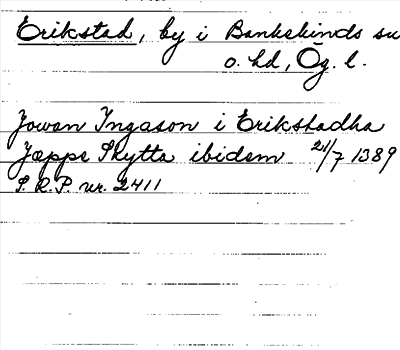 Erikstad, by i Bankekinds su
o. hd, Ög. l.
Jowan Ingason i Erikstadha
Jæppe Skytta ibidem 21/7 1389
S.R.P. nr. 2411